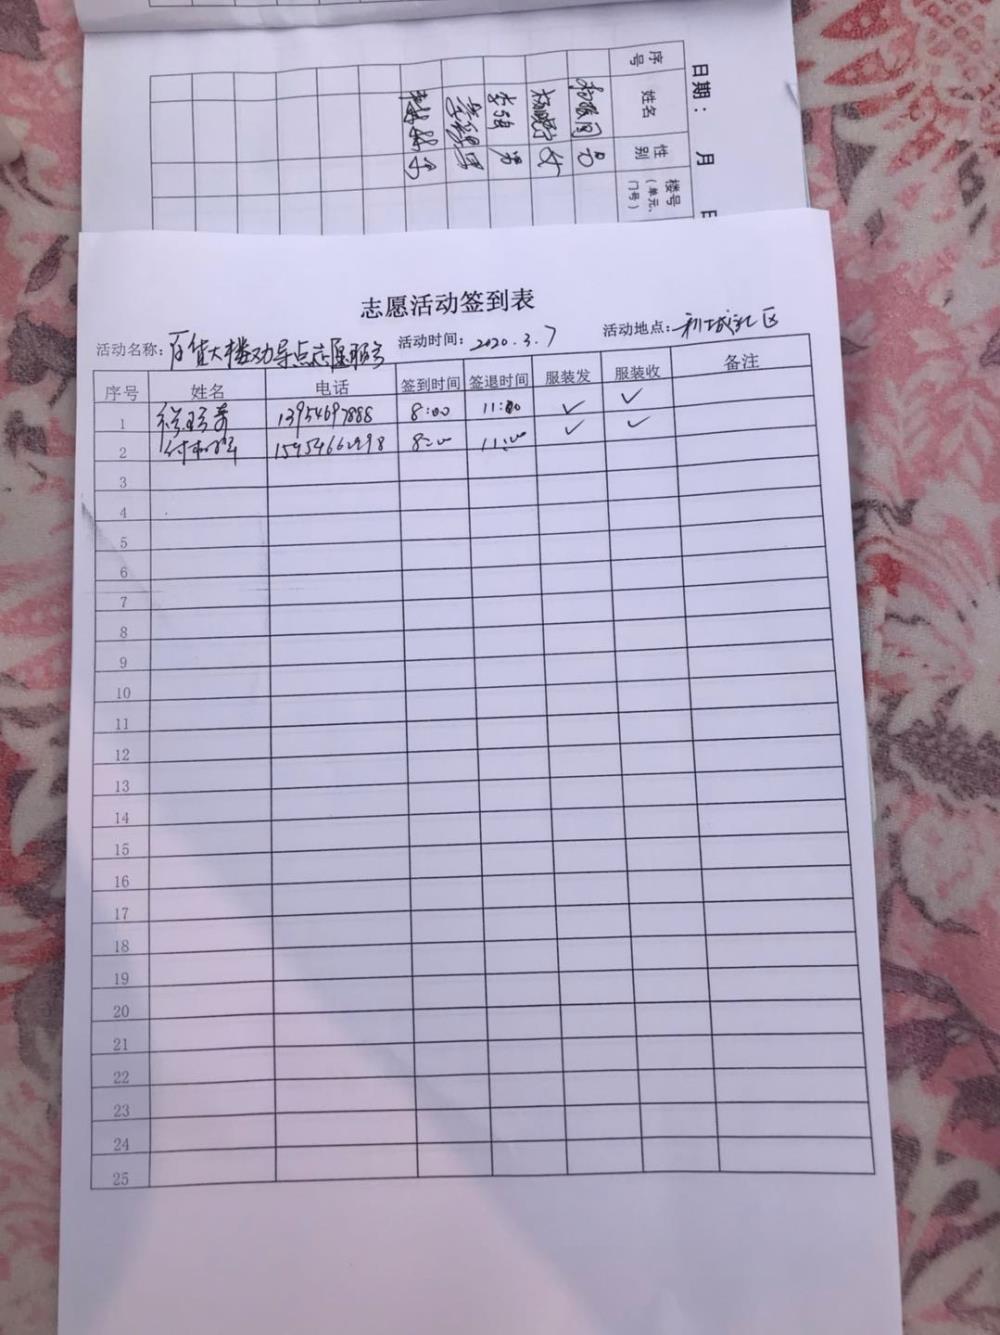 日期： 月 日
序号 姓名 性别 楼号（单元、门号）
男
女
李强 男
男
男
志愿活动签到表
活动名称：百货大楼劝导点志愿服务 活动时间：2020.3.7 活动地点：利城社区
序号 姓名 电话 签到时间 签退时间 服装发 服装收 备注
1 13954697888 8:00 11:00 ✓ ✓
2 8:00 11:00 ✓ ✓
3
4
5
6
7
8
9
10
11
12
13
14
15
16
17
18
19
20
21
22
23
24
25